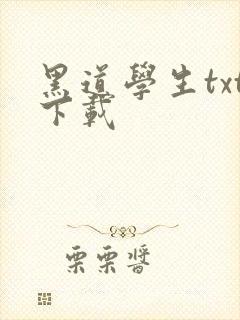 黑道學生txt
下載
栗栗醬